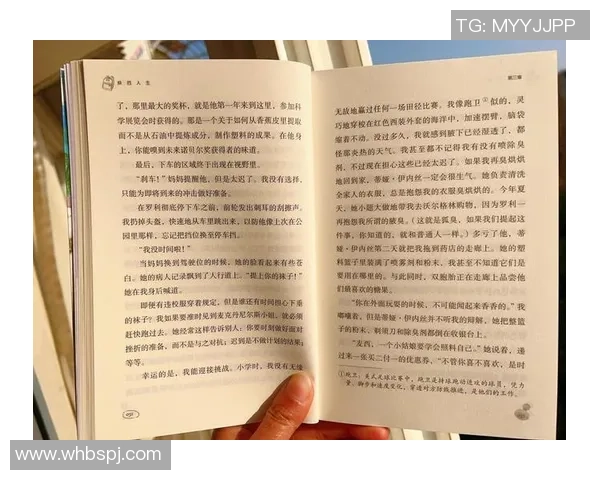 TG: MYYJJPP
麻烦人生
了，那里最大的奖杯，就是他第一年来到这里，参加科
学展览会时获得的。那是一个关于如何从香蕉皮里提取
而不是从石油中提炼成分，制作塑料的成果。在他身
上，你能嗅到未来诺贝尔奖获得者的味道。
最后，下车的区域终于出现在视野里。
“刹车！”妈妈提醒他，但是太迟了。我没有选择，
只能为即将到来的冲击做好准备。
在罗利彻底停下车之前，前轮发出刺耳的刮擦声，
我扔掉头盔，快速地从车里跳出来，以防他像上次在公
园里那样，忘记把挡位换至停车挡。
“我没时间啦！”
当妈妈换到驾驶位的时候，她的脸看起来有些苍
白。她的病人记录飘到了人行道上。“提上你的袜子！”
她在我身后喊道。
即便有连校服穿着规定，但是谁还有时间担心下垂
的袜子？我如果要准时见到麦克丹尼尔斯小姐，就必须
赶快跑过去。她经常这样告诉别人：你要时刻做好面对
挫折的准备，而不是与之对抗；迟到是不做计划的结果；
等等。
幸运的是，我能迎接挑战。小学时，我没有天
第三章
无敌地赢过任何一场田径比赛。我像跑卫①似的，灵
巧地穿梭在红色西装外套的海洋中，加速摆臂，脑袋
缩着不动。没过多久，我就感到腋下已经湿透了，都
怪那炎热的天气。我甚至都不记得我有没有喷除臭
剂，不过现在担心这些已经太迟了。如果我再臭烘烘
地回到家，蒂娅·伊内丝一定会很生气。她负责清洗
全家人的衣服，总是抱怨我的衣服臭烘烘的。今年夏
天，她小题大做地带我去沃尔格林购物，因为罗利一
再抱怨我所谓的腋臭。（这就是狐臭，如果我们提起这
件事，你知道的，就和普通人一样。）多亏了他，蒂
娅·伊内丝第二天就把我拖到药店的走廊上。她的塑
料篮子里装满了喷雾剂和粉末，我甚至不知道它们是
要用在哪里的。与此同时，双胞胎正在走廊上品尝他
们最喜欢的糖果。
“你在外面玩耍的时候，不可能闻起来香香的。”我
嘟囔着，但是蒂娅·伊内丝并不听我的辩解，她把整篮
子的粉末、剃须刀和除臭剂都倒在收银台上。
“麦西，一个小姑娘要学会照料自己。”她说着，递
过来一张买二付一的优惠券。“不管你喜不喜欢，是时
①跑卫，美式足球比赛中，跑卫是持球跑动进攻的球员，凭力
量、脚步和速度变化，穿过对方防线推进，是他们的工作。
www.whbspj.com